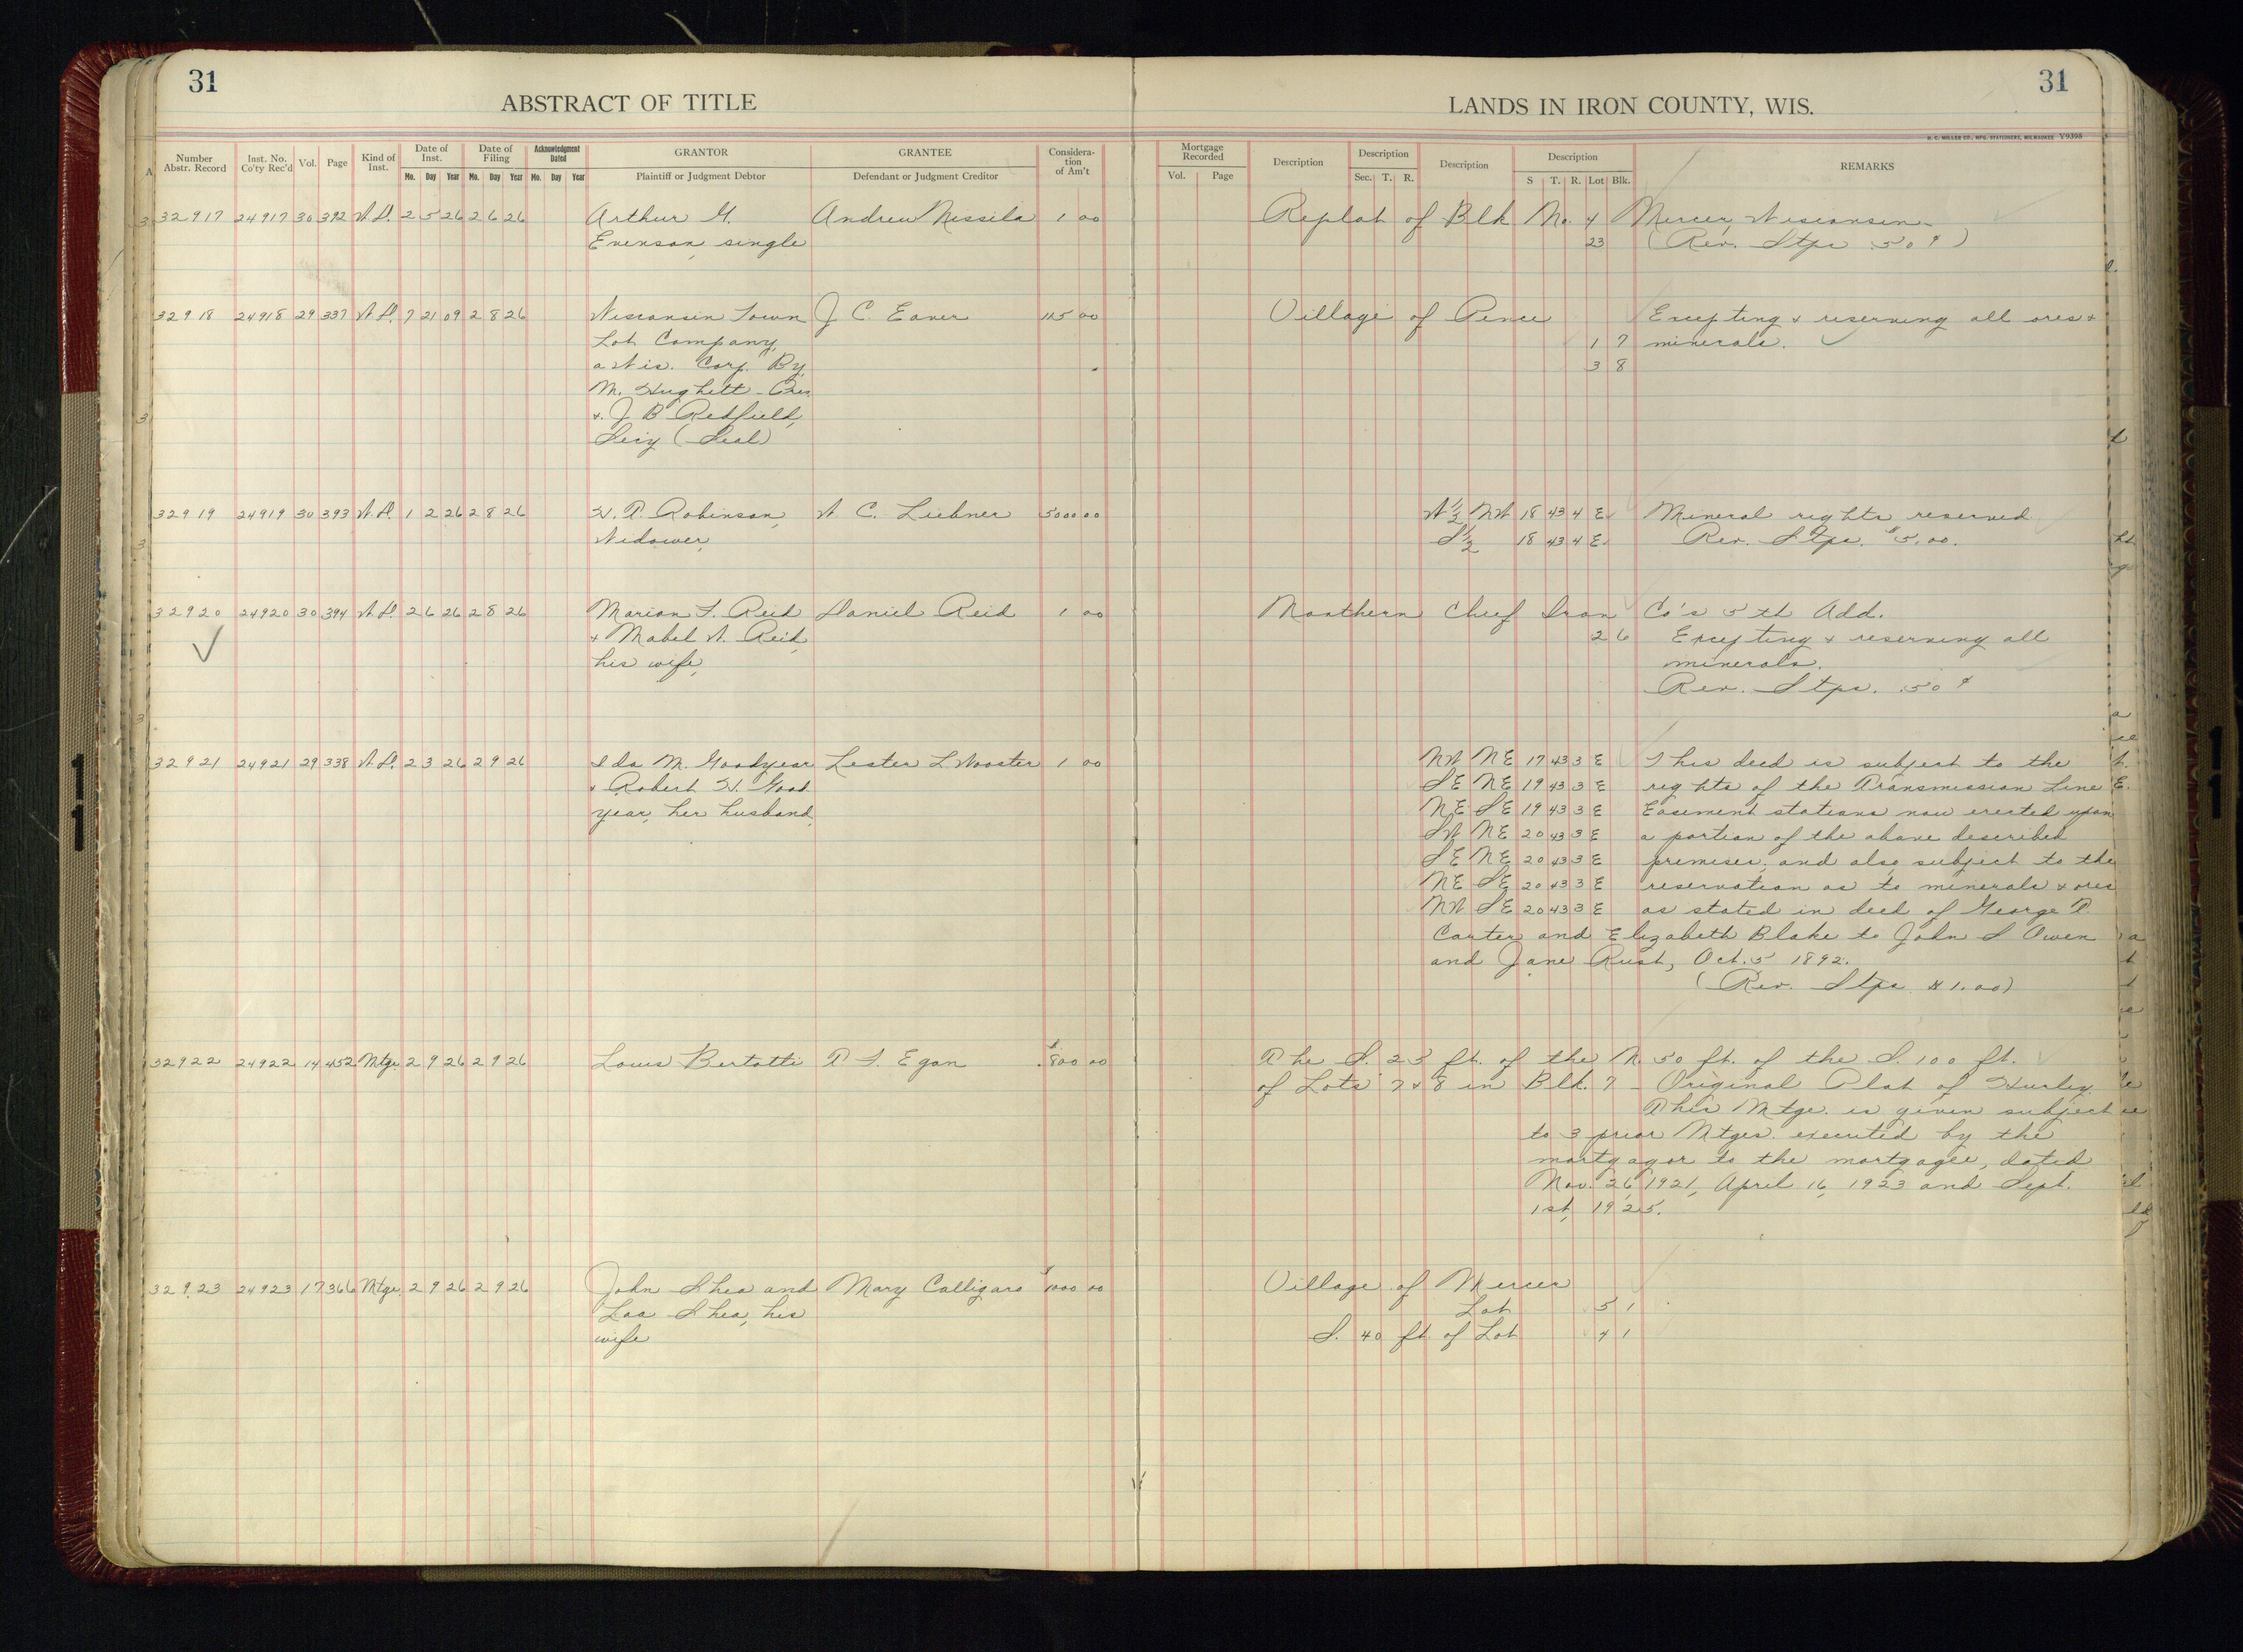 31
31
ABSTRACT OF TITLE
LANDS IN IRON COUNTY, WIS.
H. C. MILLER CO., MFG. STATIONERS, MILWAUKEE Y9398
Number Abstr. Record
Inst. No. Co'ty Rec'd
Vol.
Page
Kind of Inst.
Date of Inst.
Mo. Day Year
Date of Filing
Mo. Day Year
Acknowledgment Dated
Mo. Day Year
GRANTOR
Plaintiff or Judgment Debtor
GRANTEE
Defendant or Judgment Creditor
Considera-tion of Am't
Mortgage Recorded
Vol. Page
Description
Description
Sec. T. R.
Description
Description
S T. R. Lot Blk.
REMARKS
32917 24917 30 392 W.D. 2 5 26 2 6 26 Arthur G. Andrew Nissila 1 00 Replat of Blk No. 4 Mercer, Wisconsin
Evenson, single 23 (Rev. Stps .50¢)
32918 24918 29 337 W.D. 7 21 09 2 8 26 Wisconsin Town J C. Eaver 115 00 Village of Pence Excepting & reserving all ores &
Lot Company, 1 7 minerals.
a Wis. Corp. By, 3 8
M. Hughett - Pres
&. J B Redfield,
Secy (Seal)
32919 24919 30 393 W.D. 1 2 26 2 8 26 H. P. Robinson, W C. Liebner 5000 00 W½ NW 18 43 4 E Mineral rights reserved
Widower, S½ 18 43 4 E. Rev. Stps. $5.00.
32920 24920 30 394 W.D. 2 6 26 2 8 26 Marion T. Reid Daniel Reid 1 00 Northern Chief Iron Co's 5th Add.
& Mabel W. Reid, 2 6 Excepting & reserving all
his wife, minerals.
Rev. Stps. .50¢
32921 24921 29 338 W.D. 2 3 26 2 9 26 Ida M. Goodyear Lester L. Wooster 1 00 NW NE 17 43 3 E This deed is subject to the
& Robert H. Good SE NE 19 43 3 E rights of the Transmission Line
year, her husband, NE SE 19 43 3 E Easement stations now erected upon
SW NE 20 43 3 E a portion of the above described
SE NE 20 43 3 E premises; and also subject to the
NE SE 20 43 3 E reservation as to minerals & ores
NW SE 20 43 3 E as stated in deed of George P.
Carter and Elizabeth Blake to John S Owen
and Jane Rust, Oct. 5 1892.
(Rev. Stps $1.00)
32922 24922 14 452 Mtge 2 9 26 2 9 26 Louis Bertotti P. T. Egan $800 00 The S. 25 ft. of the N. 50 ft. of the S. 100 ft.
of Lots 7 & 8 in Blk. 7 - Original Plat of Hurley.
This Mtge. is given subject
to 3 prior Mtges. executed by the
mortgagor to the mortgagee, dated
Nov. 26, 1921, April 16, 1923 and Sept.
1st, 1925.
32923 24923 17 366 Mtge. 2 9 26 2 9 26 John Shea and Mary Calligaro $1000 00 Village of Mercer
Shea, his Lot 5 1
wife S. 40 ft. of Lot 4 1